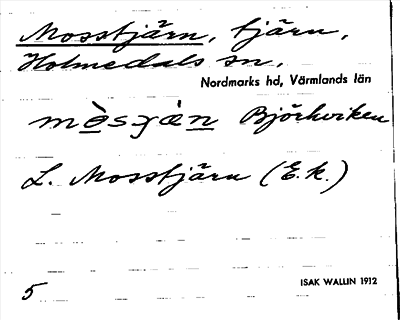 Mosstjärn, tjärn,
Holmedals sn.
Nordmarks hd, Värmlands län
Björkviken
L. Mosstjärn (E.k.)
5
ISAK WALLIN 1912